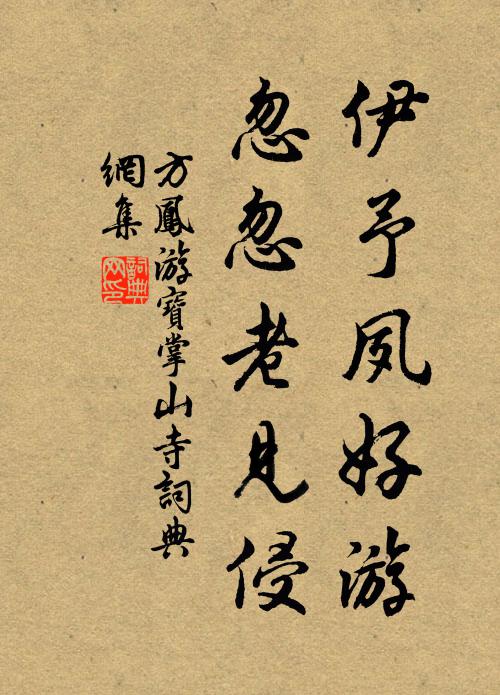 伊予夙好游
忽忽老見侵
方鳳游寶掌山寺詞典
網集
詞典
网印